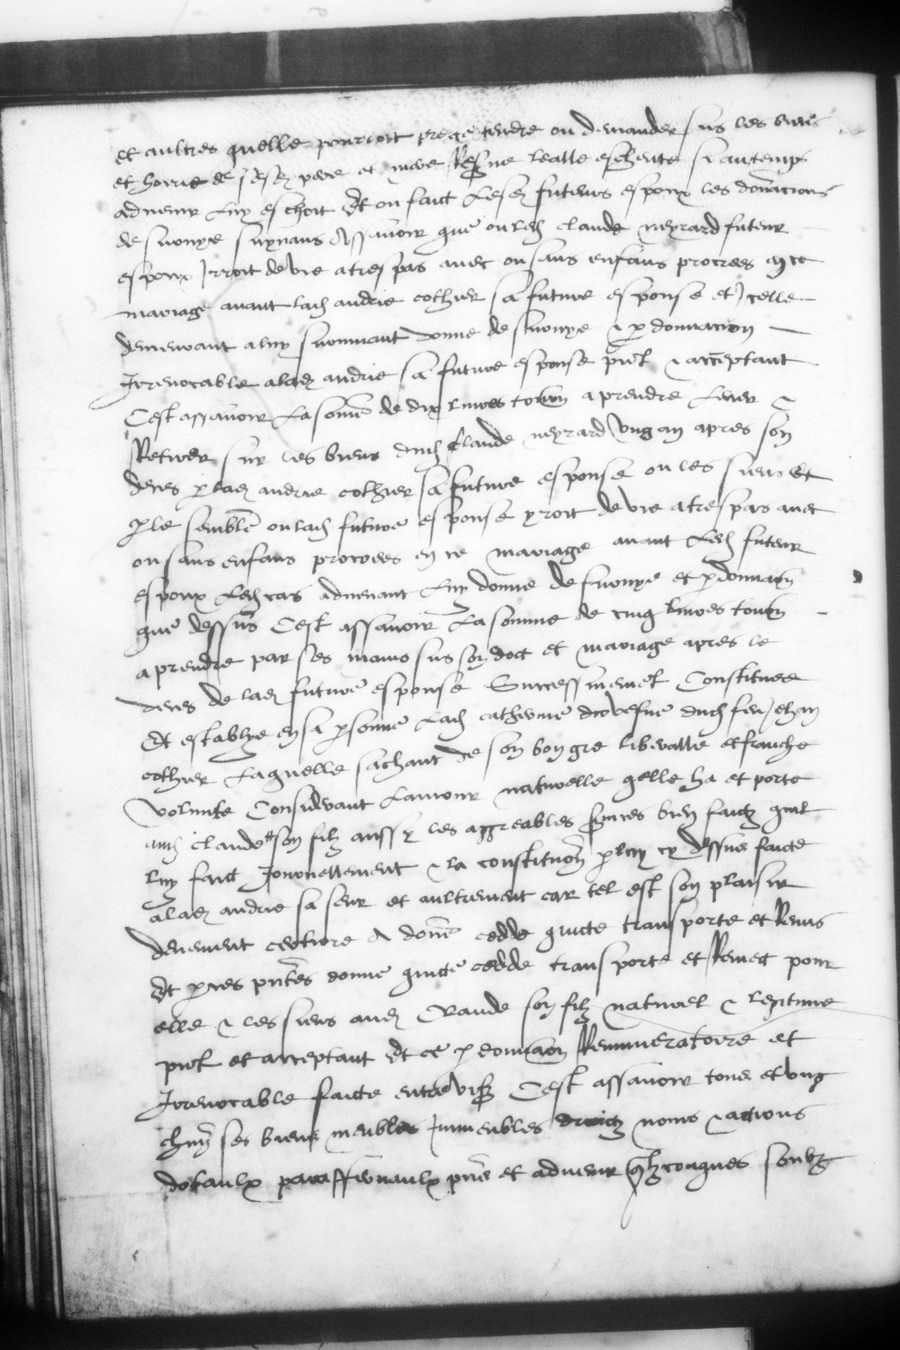 et aultres quelle pourroit pretendre ou demander sus les biens
et hoirie de sesd pere et mere Reserve lealle escheute si au temps
advenir luy eschoit Et on faict lesd futeurs espoux les donacions
de survye suyvans Assavoir que ou led claude meyrard futeur
espoux Iroit de vie a trespas avec ou sans enfans procrees en ce
mariage avant lad andrie cothier sa future espouse et Icelle
demeurant a luy survivant donne de survye & p donnacion
Irrevocable a lad andrie sa future espouse pnt & acceptant
Cest assavoir la some de dix livres tourn a prendre lever &
Retirer sur les biens dud claude meyrard ung an apres son
deces p lad andrie cothier sa future espouse ou les siens Et
p le semble ou lad future espouse yroit de vie a trespas avec
ou sans enfans procrees en ce mariage avant led futeur
espoux led cas advenant luy donne de survye et p donnacion
que dessus Cest assavoir la somme de cinq livres tourn
a prendre par ses mains sus son dot et mariage apres le
deces de lad future espouse Successivemet Constituee
Et establye en sa psonne lad catherine dud feu Jehan
cothier laquelle sachant de son bon gre liberalle et franche
volunte Considerant lamour naturelle qelle ha et porte
aud claude son filz aussy les aggreables services bien faictz quil
luy faict Journellement & la constitution p luy cy dessus faicte
a lad andrie sa seur et aultrement car tel est son plaisir
a donne cedde quicte transporte et Remis
Et p ces pntes donne quicte cedde transporte et Remect pour
elle & les siens aud Claude son filz naturel & legitime
pnt et acceptant Et ce p donnacion Remuneratoire et
Irrevocable faicte entre vifz Cest assavoir tous et ung
chun ses biens meubles Immeubles droictz noms & actions
dotaulx paraffernaulx pns et advenir qlzconques soubz